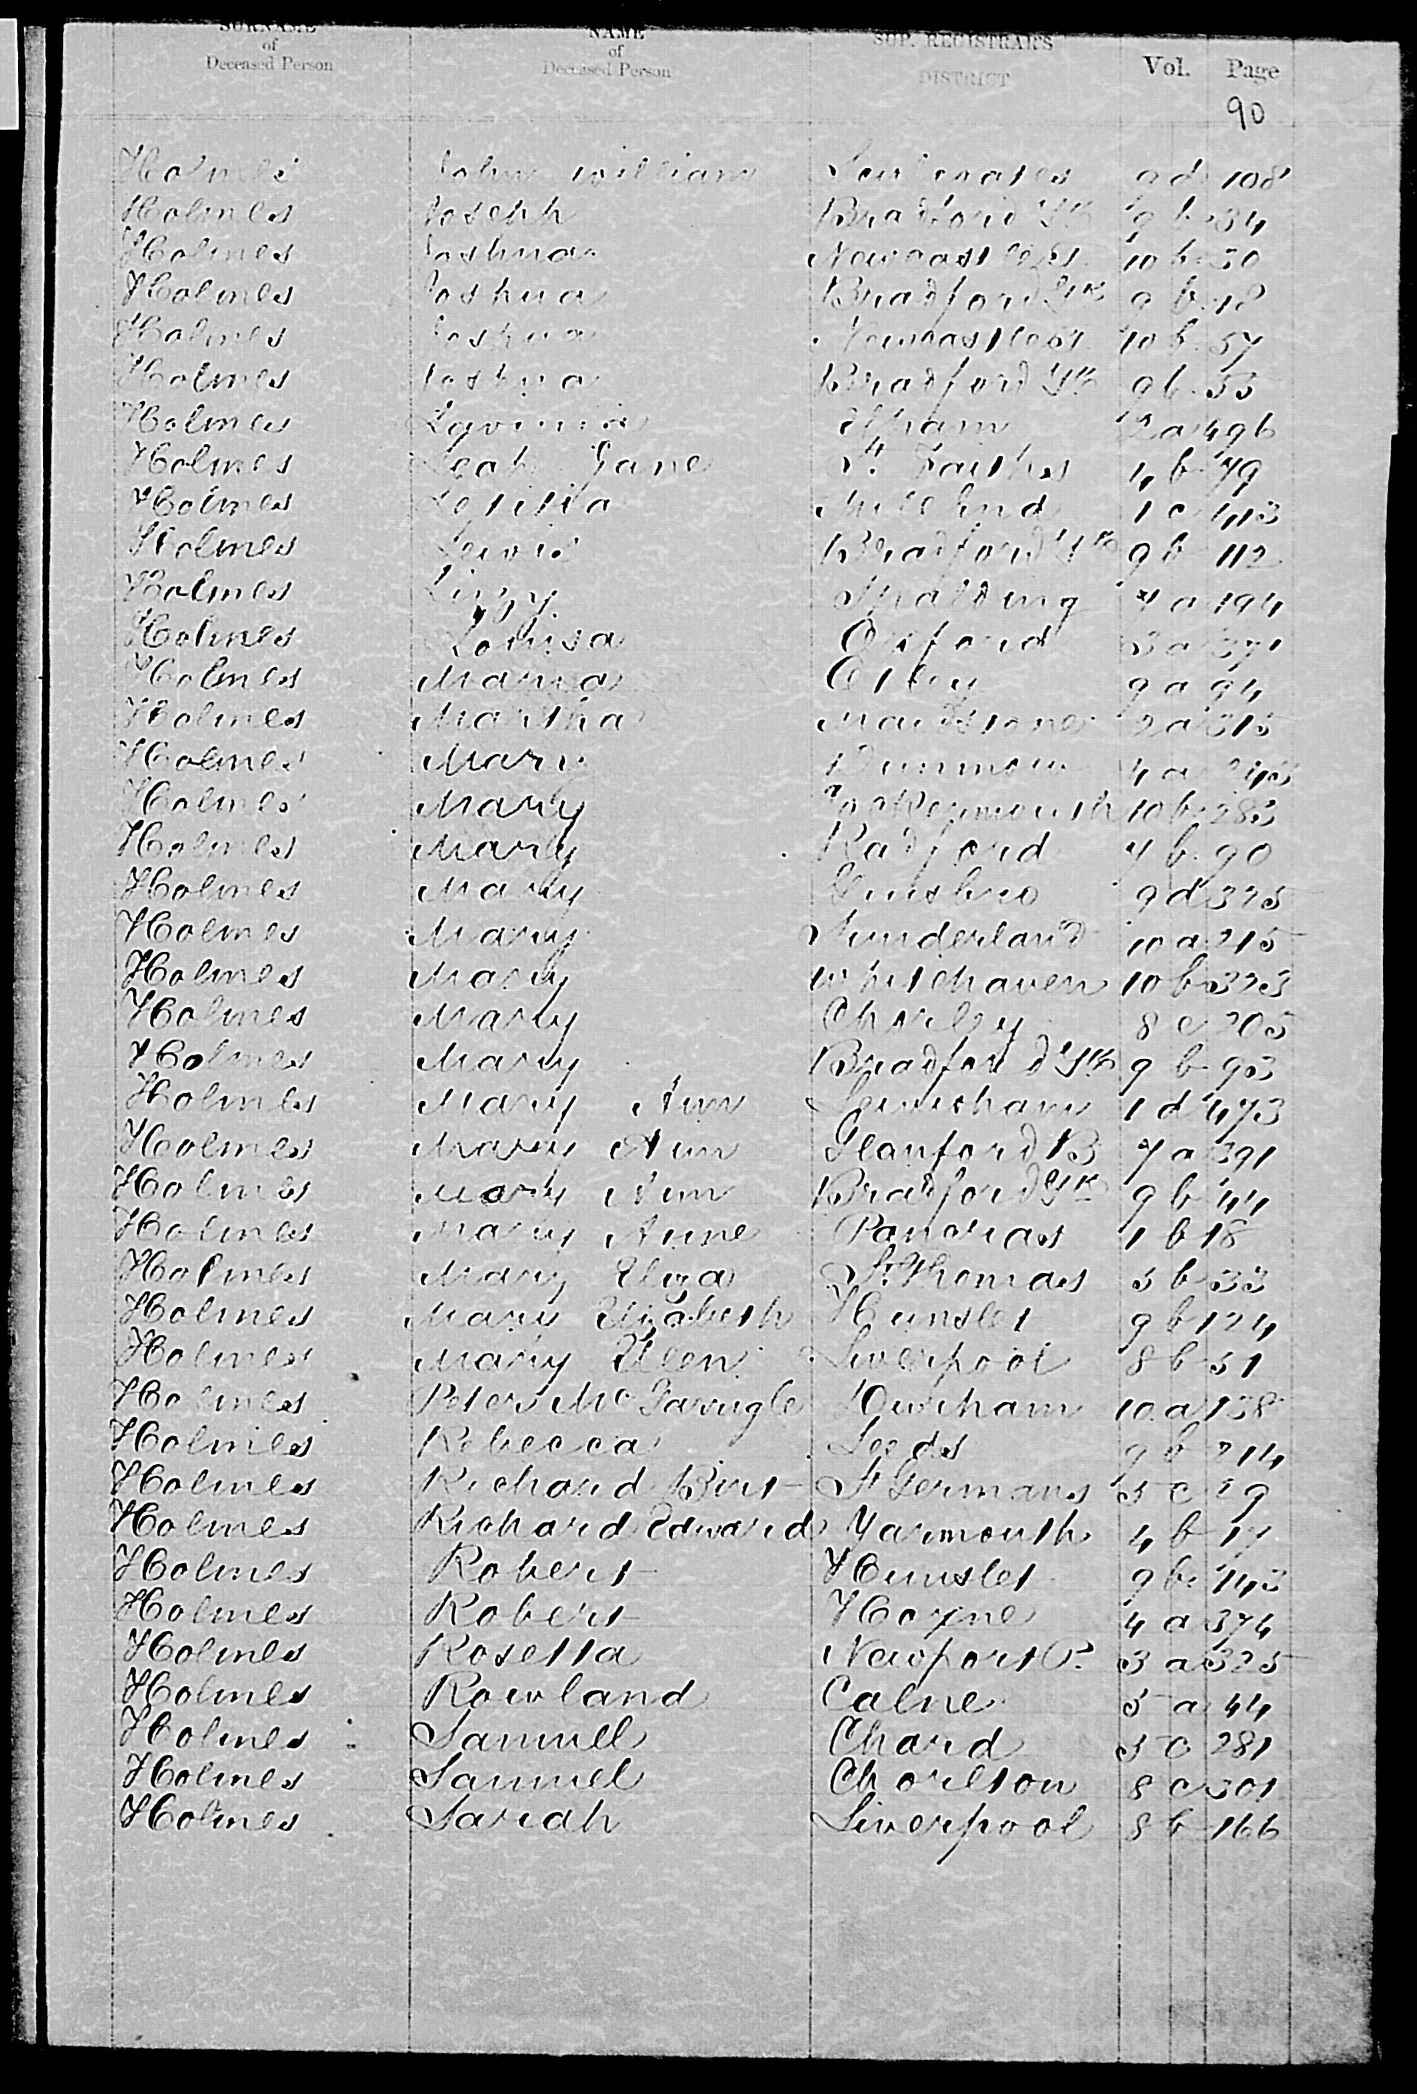 SURNAME of Deceased Person NAME of Deceased Person SUP. REGISTRAR'S DISTRICT Vol. Page
90
Holmes John William Sculcoates 9 d 108
Holmes Joseph Bradford Yk 9 b 34
Holmes Joshua Newcastle 10 b 30
Holmes Joshua Bradford Yk 9 b 18
Holmes Joshua Newcastle 10 b 57
Holmes Joshua Bradford Yk 9 b 53
Holmes Lavinia 2 a 496
Holmes Leah Jane St. Faiths 4 b 79
Holmes Letitia Mile End 1 c 413
Holmes Lewis Bradford Yk 9 b 112
Holmes Lizzy Spalding 7 a 194
Holmes Louisa Oxford 3 a 371
Holmes Maria Otley 9 a 94
Holmes Martha Maidstone 2 a 315
Holmes Mary Dunmow 4 a
Holmes Mary Cockermouth 10 b 283
Holmes Mary Radford 7 b 90
Holmes Mary Guisbro 9 d 325
Holmes Mary Sunderland 10 a 215
Holmes Mary Whitehaven 10 b 323
Holmes Mary Chorley 8 e 205
Holmes Mary Bradford Yk 9 b 93
Holmes Mary Ann Lewisham 1 d 473
Holmes Mary Ann Glanford B 7 a 391
Holmes Mary Ann Bradford Yk 9 b 44
Holmes Mary Anne Pancras 1 b 18
Holmes Mary Eliza St. Thomas 5 b 33
Holmes Mary Elizabeth Hunslet 9 b 124
Holmes Mary Ellen Liverpool 8 b 51
Holmes Peter Mc Durham 10 a 138
Holmes Rebecca Leeds 9 b 214
Holmes Richard Birt St Germans 5 c 29
Holmes Richard Edward Yarmouth 4 b 17
Holmes Robert Hunslet 9 b 143
Holmes Robert Hoxne 4 a 374
Holmes Rosetta Newport P. 3 a 325
Holmes Rowland Calne 5 a 44
Holmes Samuel Chard 5 c 281
Holmes Samuel Chorlton 8 c 301
Holmes Sarah Liverpool 8 b 166